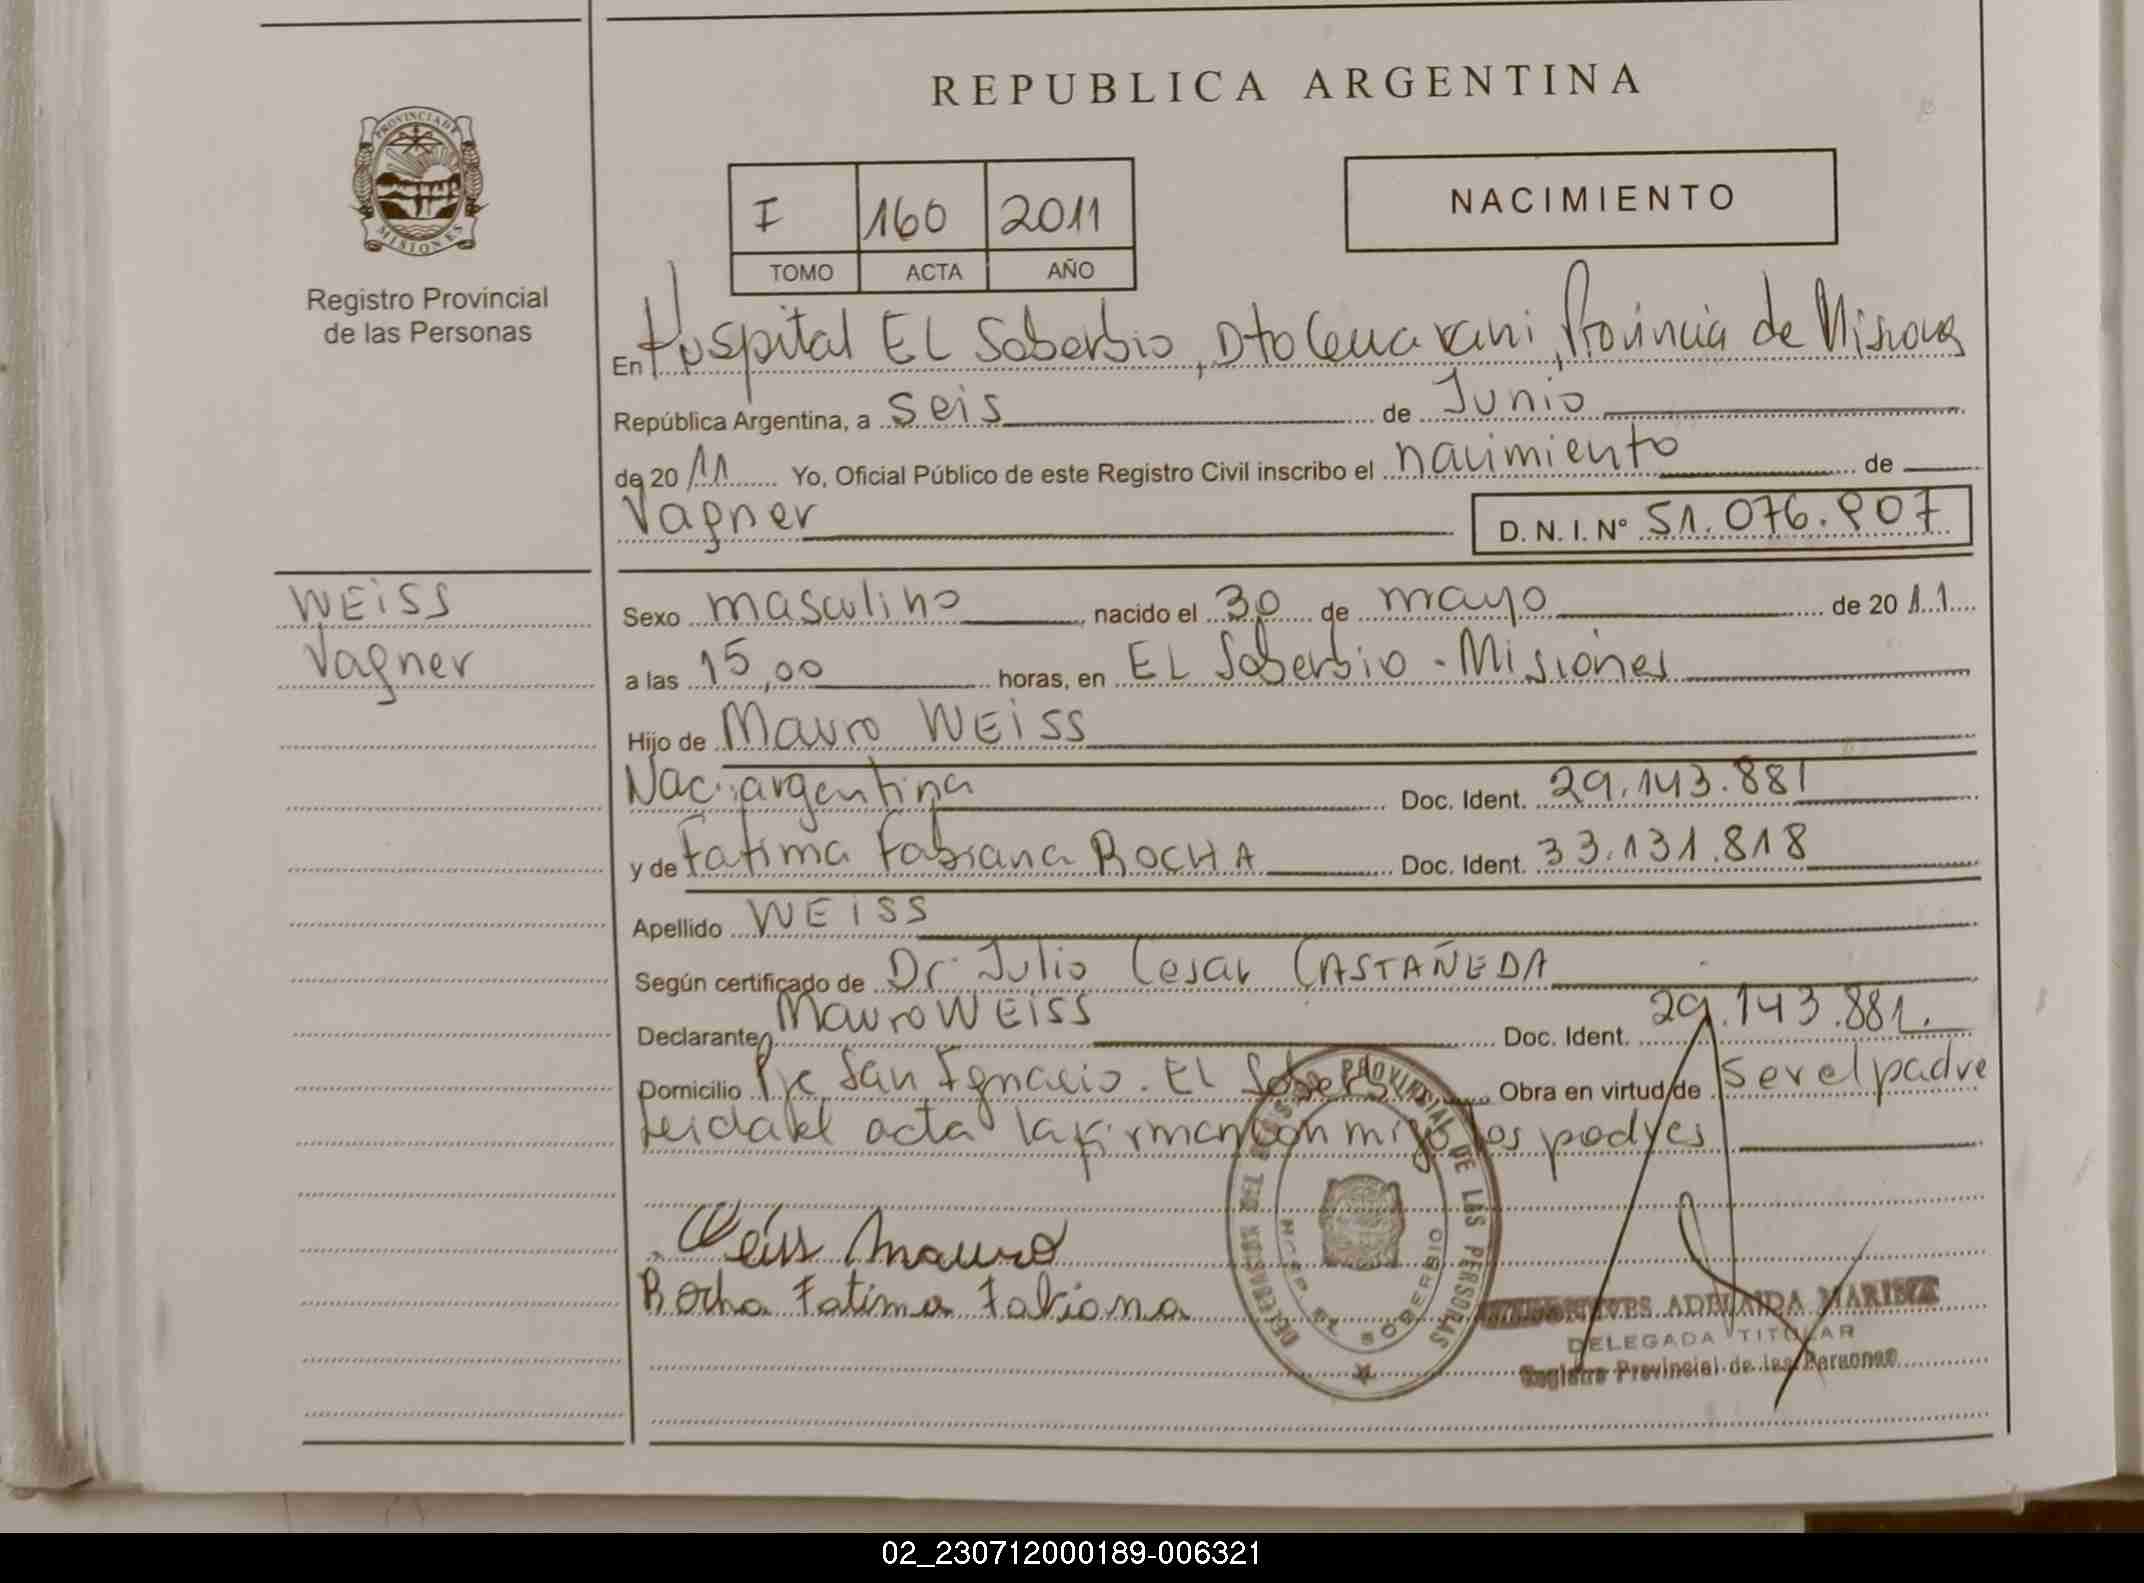 REPUBLICA ARGENTINA
PROVINCIA DE
MISIONES
Registro Provincial
de las Personas
I 160 2011
TOMO ACTA AÑO
NACIMIENTO
En Hospital EL Soberbio, Dto Guarani, Provincia de Misiones
República Argentina, a seis de Junio
de 2011 Yo, Oficial Público de este Registro Civil inscribo el nacimiento de
Vagner
D. N. I. N° 51.076.907
WEiSS
Vagner
Sexo masculino, nacido el 30 de mayo de 2011
a las 15,00 horas, en EL Soberbio - Misiones
Hijo de Mauro WEiSS
Nac. argentina Doc. Ident. 29.143.881
y de Fatima Fabiana ROCHA Doc. Ident. 33.131.818
Apellido WEiSS
Según certificado de Dr. Julio Cesar CASTAÑEDA
Declarante Mauro WEiSS Doc. Ident. 29.143.881.
Domicilio Pje San Ignacio. EL Soberbio Obra en virtud de ser el padre
Leida el acta la firman con migo los padres
Weiss Mauro
Rocha Fatima Fabiana
DELEGACION DEL REGISTRO PROVINCIAL DE LAS PERSONAS
SOBERBIO
ADELAIDA
DELEGADA TITULAR
Registro Provincial de las Personas
02_230712000189-006321